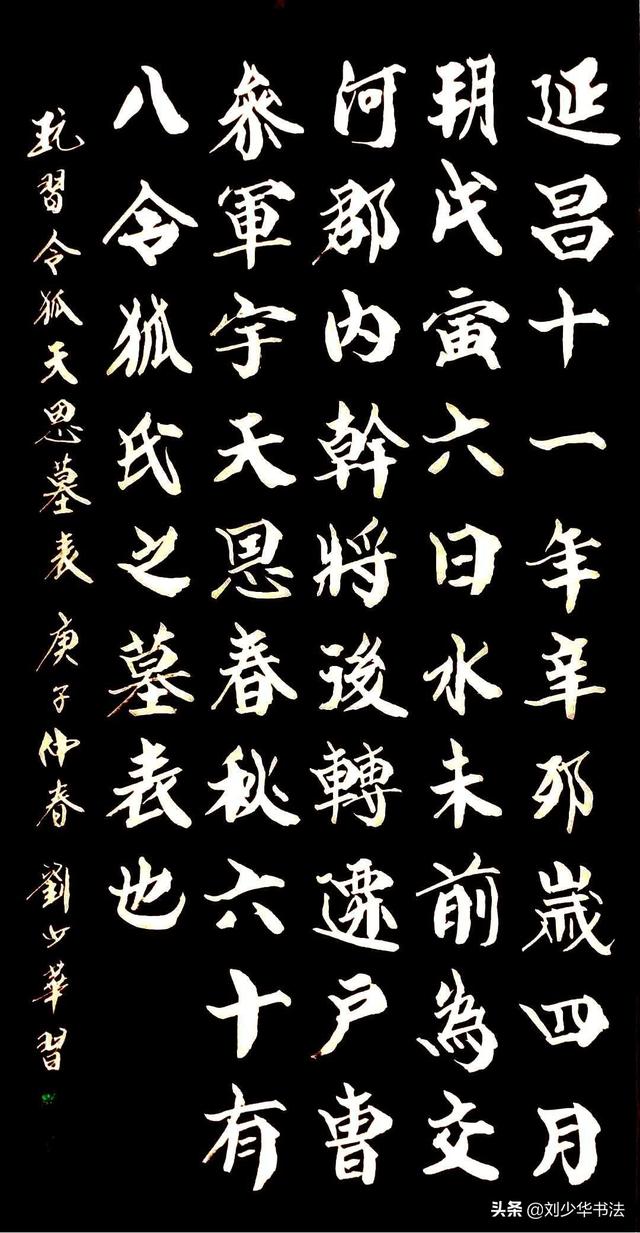 延昌十一年辛卯歲四月
玥戊寅六日水未前為交
河郡内幹將後轉遷戶曹
參軍字天恩春秋六十有
八令狐氏之墓表也
玩習令狐天恩墓表 庚子仲春 劉少華習
头条@刘少华书法